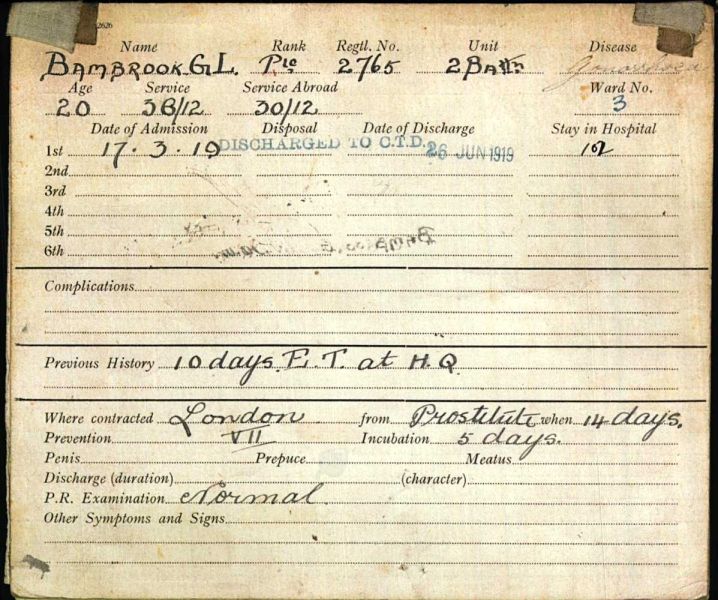 2626
Name Rank Regtl. No. Unit Disease
BAMBROOK. G. L. Pte 2765 2 Battn Gonorrhoea
Age Service Service Abroad Ward No.
20 38/12 30/12 3
Date of Admission Disposal Date of Discharge Stay in Hospital
1st 17. 3. 19 DISCHARGED TO C.T.D. 26 JUN 1919 102
2nd
3rd
4th
5th
6th
Complications
Previous History 10 days. E. T. at H.Q
Where contracted London from Prostitute when 14 days.
Prevention VII Incubation 5 days.
Penis Prepuce Meatus
Discharge (duration) (character)
P.R. Examination Normal
Other Symptoms and Signs